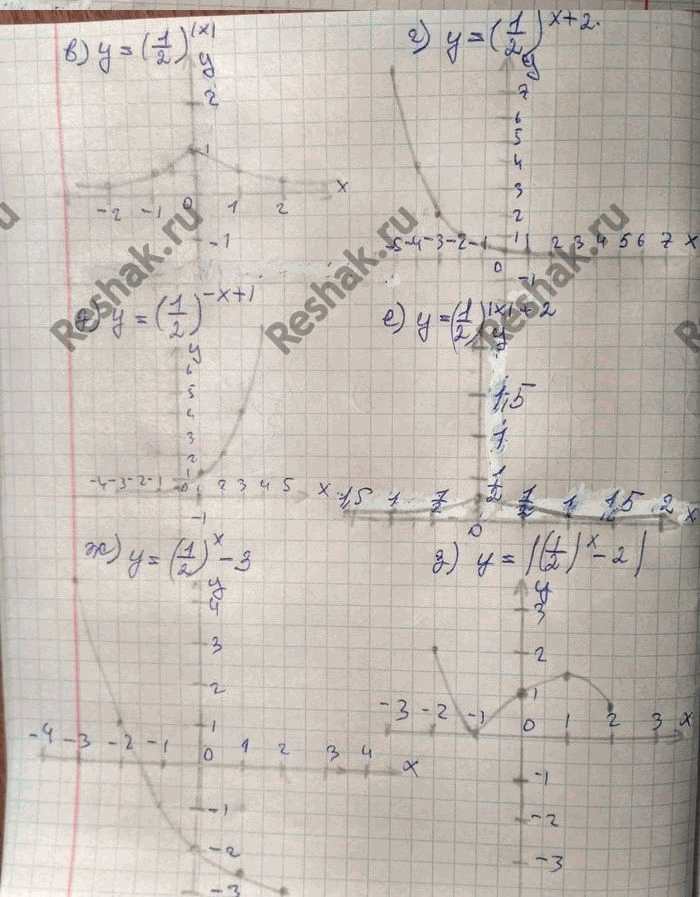 в) y = (1/2)^|x|
y
2
1
-2 -1 0 1 2 x
-1
г) y = (1/2)^x+2.
y
7
6
5
4
3
2
-5 -4 -3 -2 -1 1 1 2 3 4 5 6 7 x
0
-1
Reshak.ru
Reshak.ru
д) y = (1/2)^-x+1
y
6
5
4
3
2
1
-4 -3 -2 -1 0 1 2 3 4 5 x
-1
е) y = (1/2)^|x|+2
y
1,5
1
1/2
1,5 1 1/2 0 1/2 1 1,5 2 x
ж) y = (1/2)^x - 3
y
4
3
2
1
-4 -3 -2 -1 0 1 2 3 4 x
-1
-2
-3
з) y = |(1/2)^x - 2|
y
3
2
1
-3 -2 -1 0 1 2 3 x
-1
-2
-3
Reshak.ru
Reshak.ru